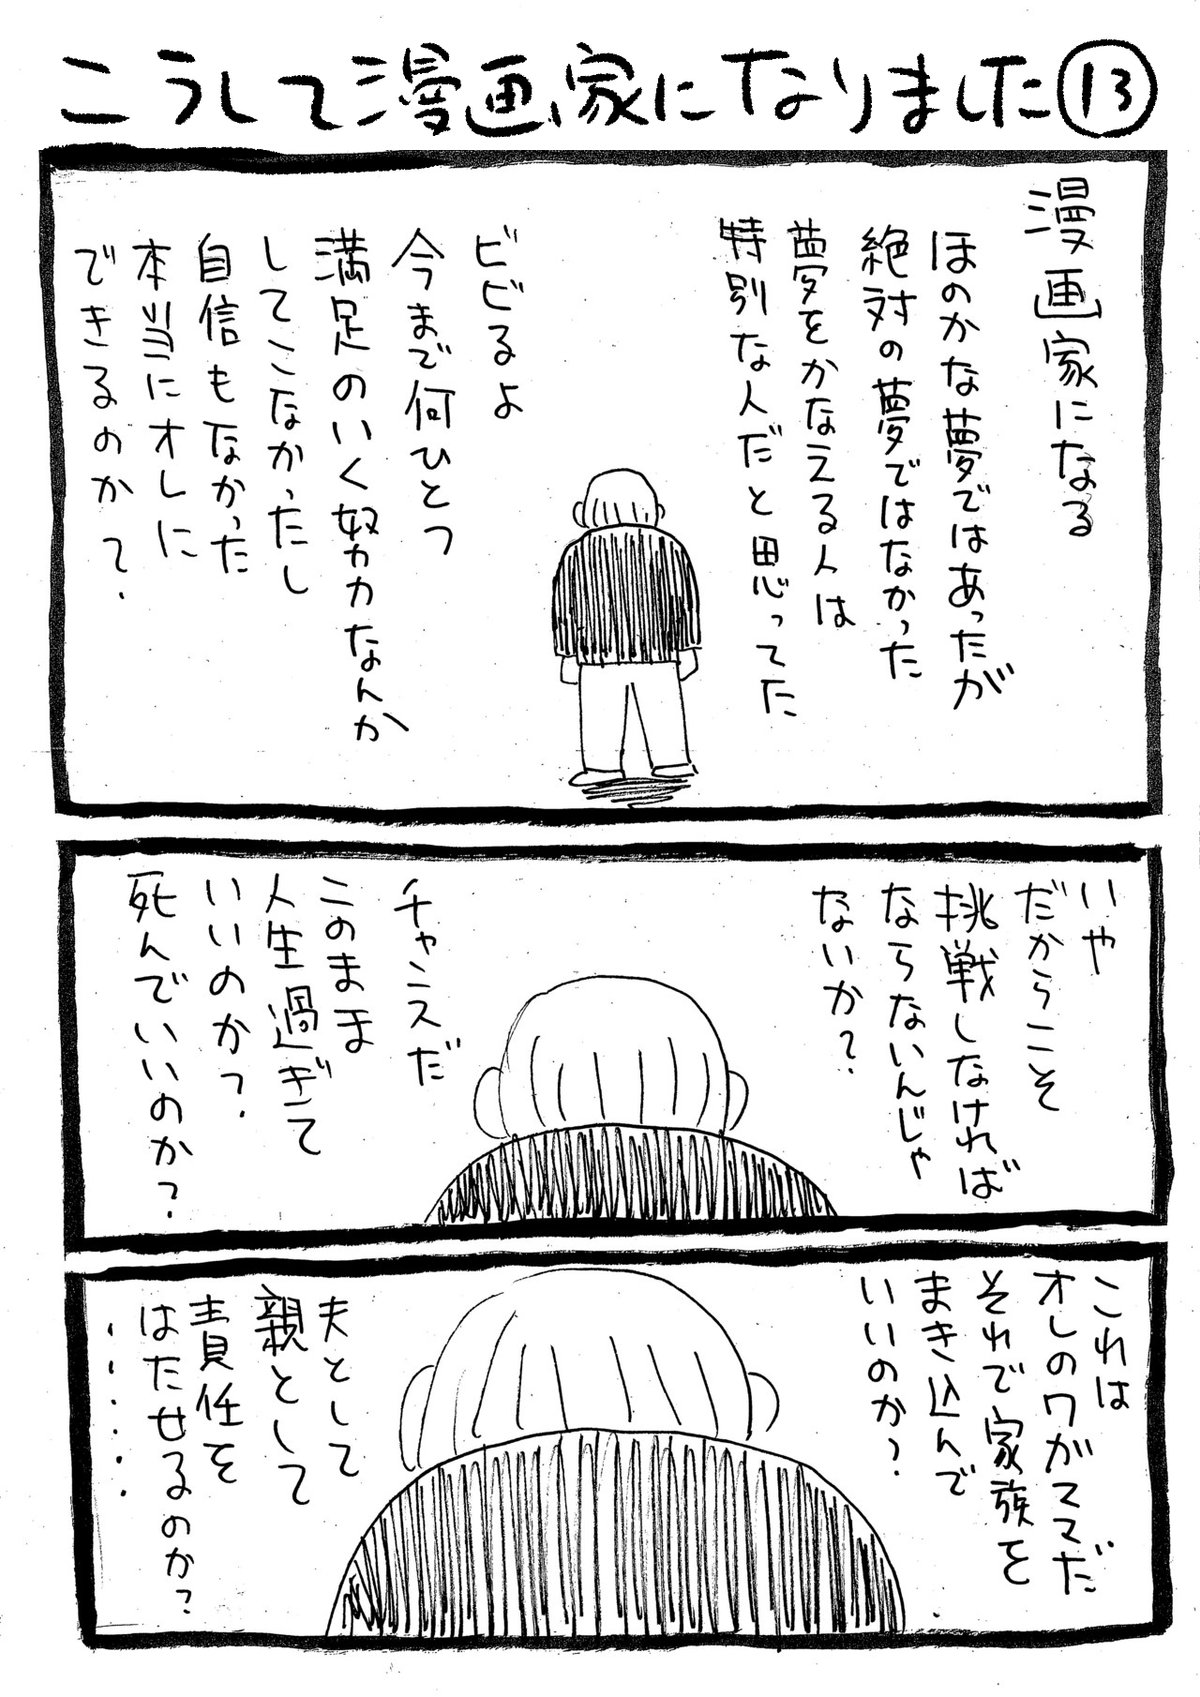 こうして漫画家になりました⑬
漫画家になる
ほのかな夢ではあったが
絶対の夢ではなかった
夢をかなえる人は
特別な人だと思ってた
ビビるよ
今まで何ひとつ
満足のいく努力なんか
してこなかったし
自信もなかった
本当にオレに
できるのかて?
いや
だからこそ
挑戦しなければ
ならないんじゃ
ないか?
チャンスだ
このまま
人生過ぎて
いいのか?
死んでいいのか?
これは
オレのワガママだ
それで家族を
まき込んで
いいのか?
夫として
親として
責任を
はたせるのか?
・・・・・・